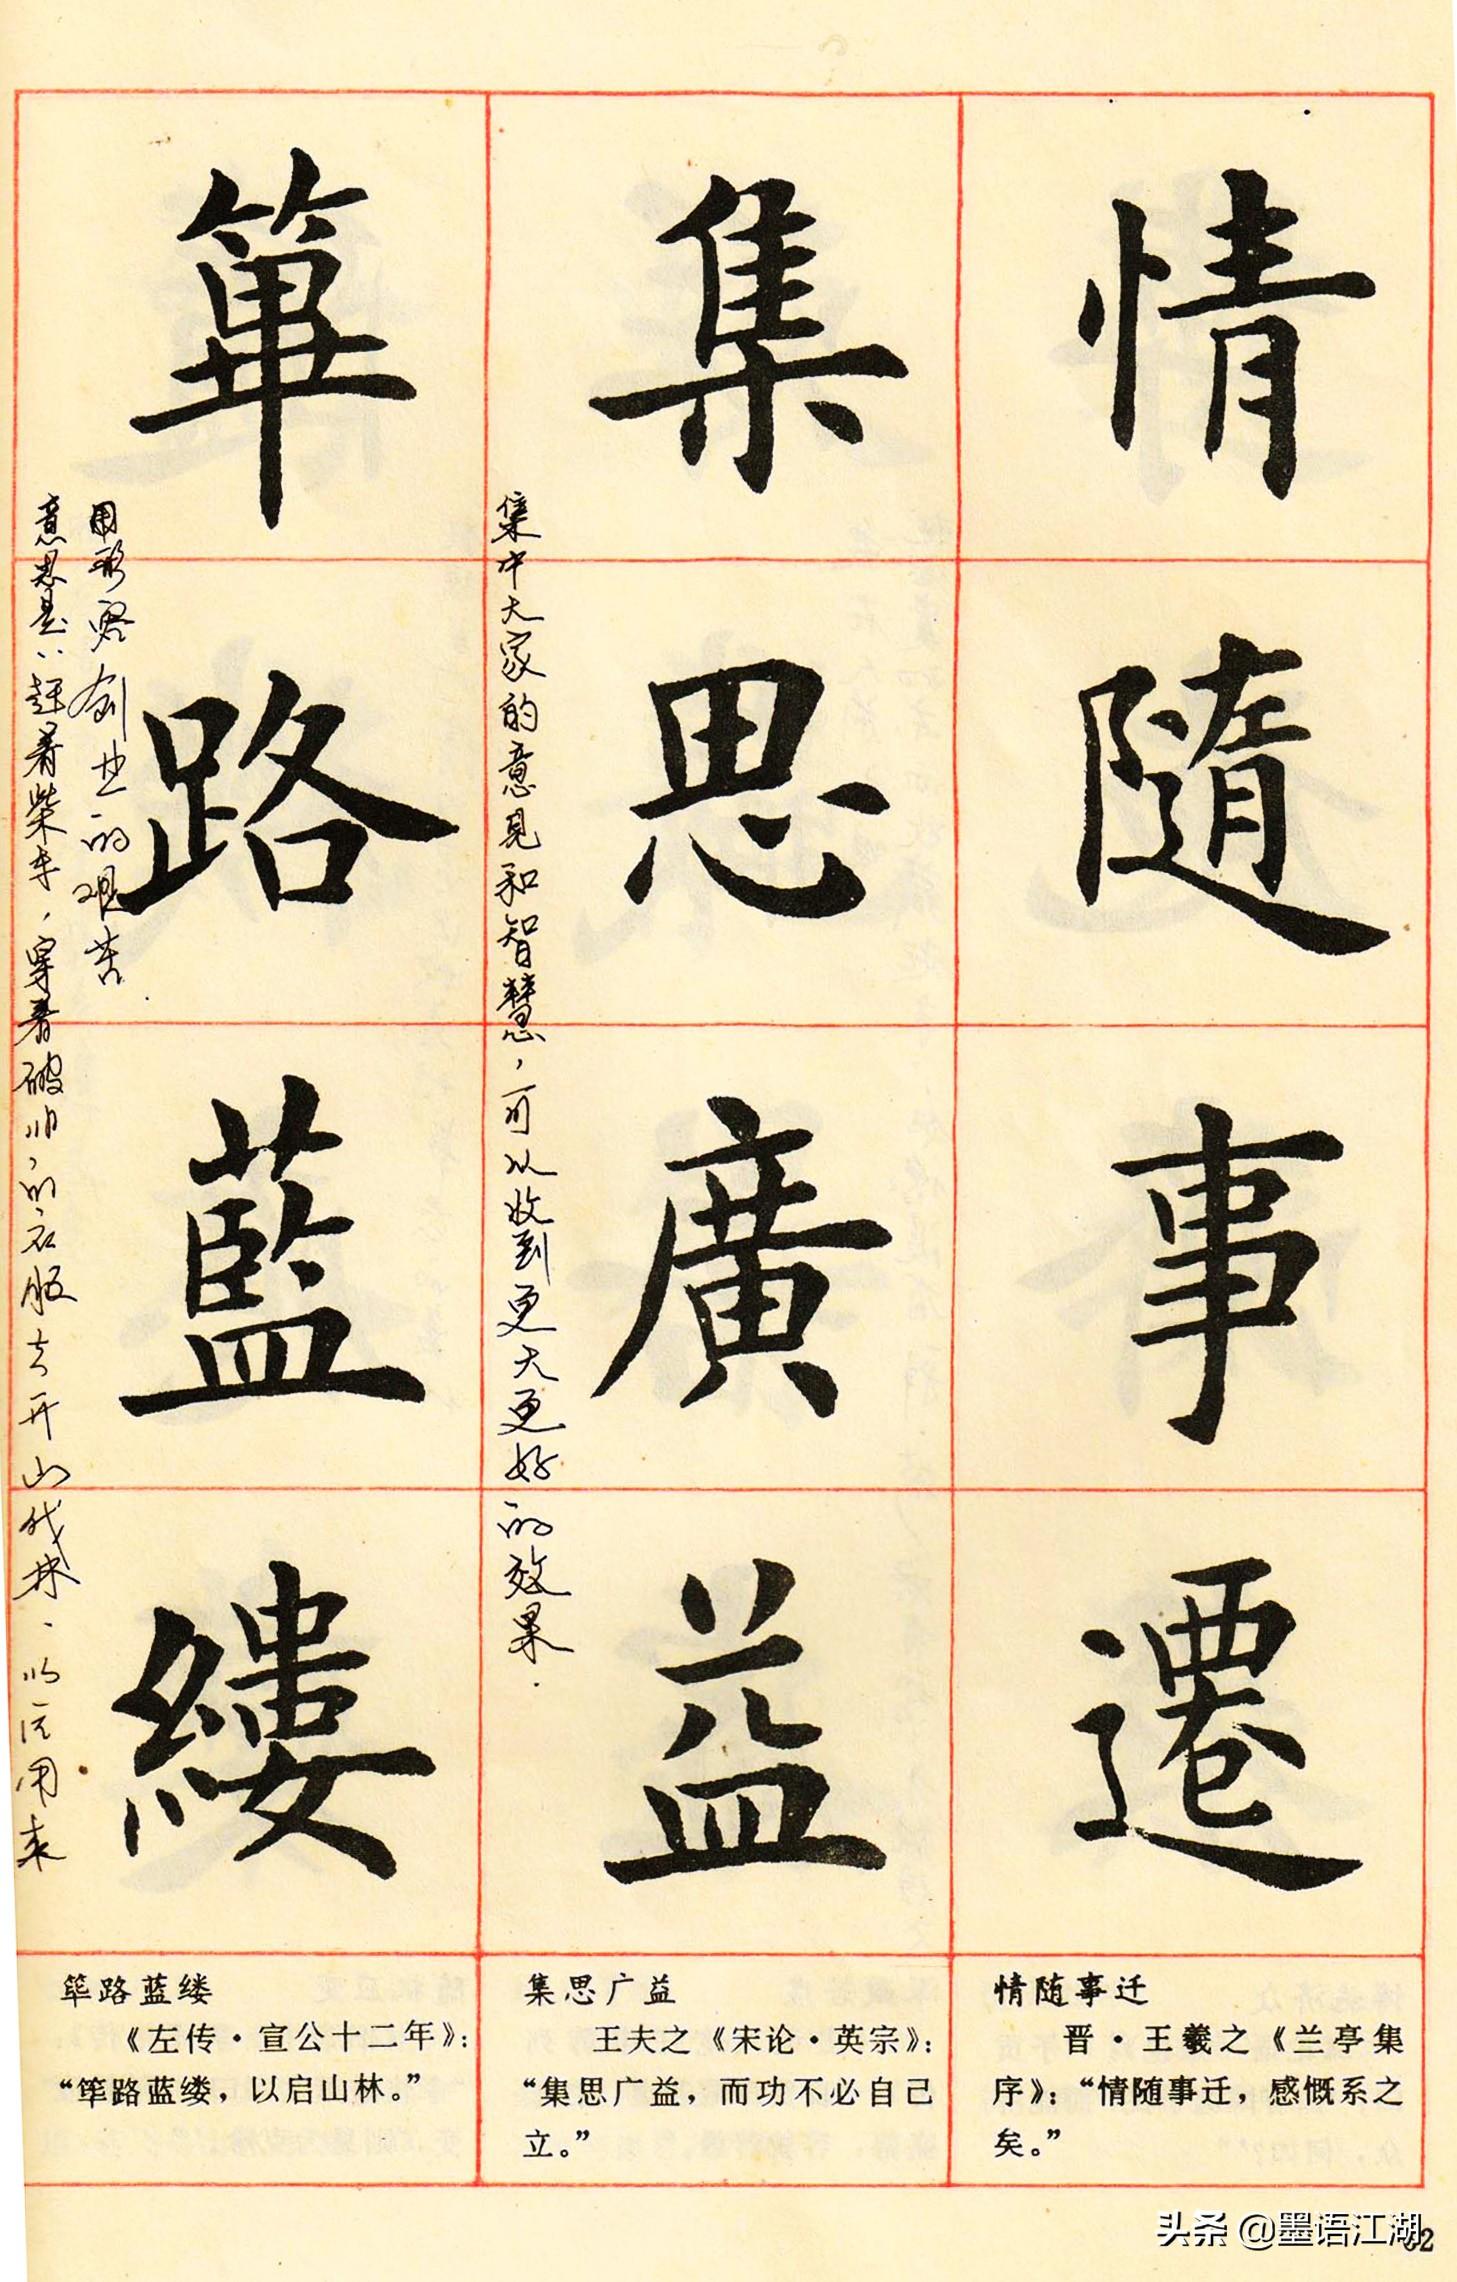 情隨事遷
集思廣益
集中大家的意见和智慧，可以收到更大更好的效果.
篳路藍縷
意思是：赶着柴车，穿着破旧的衣服去开山伐林.
用来
用形容创业的艰苦.
情随事迁
晋·王羲之《兰亭集
序》：“情随事迁，感慨系之
矣。”
集思广益
王夫之《宋论·英宗》：
“集思广益，而功不必自己
立。”
筚路蓝缕
《左传·宣公十二年》：
“筚路蓝缕，以启山林。”
头条 @墨语江湖